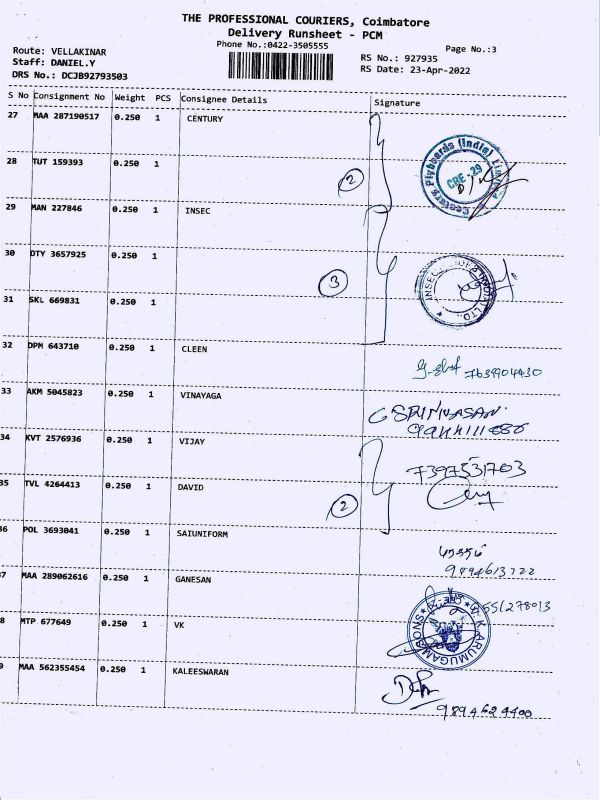 THE PROFESSIONAL COURIERS, Coimbatore
Delivery Runsheet - PCM
Phone No.:0422-3505555
Page No.:3
Route: VELLAKINAR
Staff: DANIEL.Y
DRS No.: DCJB92793503
RS No.: 927935
RS Date: 23-Apr-2022
S No Consignment No Weight PCS Consignee Details Signature
27 MAA 287190517 0.250 1 CENTURY
Century Plyboards (India) Limited
CBE-29
28 TUT 159393 0.250 1
2
29 MAN 227846 0.250 1 INSEC
30 OTY 3657925 0.250 1
3
31 SKL 669831 0.250 1
32 DPM 643710 0.250 1 CLEEN
7639904430
33 AKM 5045823 0.250 1 VINAYAGA
SRINIVASAN
34 KVT 2576936 0.250 1 VIJAY
7397531703
35 TVL 4264413 0.250 1 DAVID
2
36 POL 3693041 0.250 1 SAIUNIFORM
9494613722
37 MAA 289062616 0.250 1 GANESAN
8 MTP 677649 0.250 1 VK
V.K.ARUMUGAM SONS
9 MAA 562355454 0.250 1 KALEESWARAN
9894624400